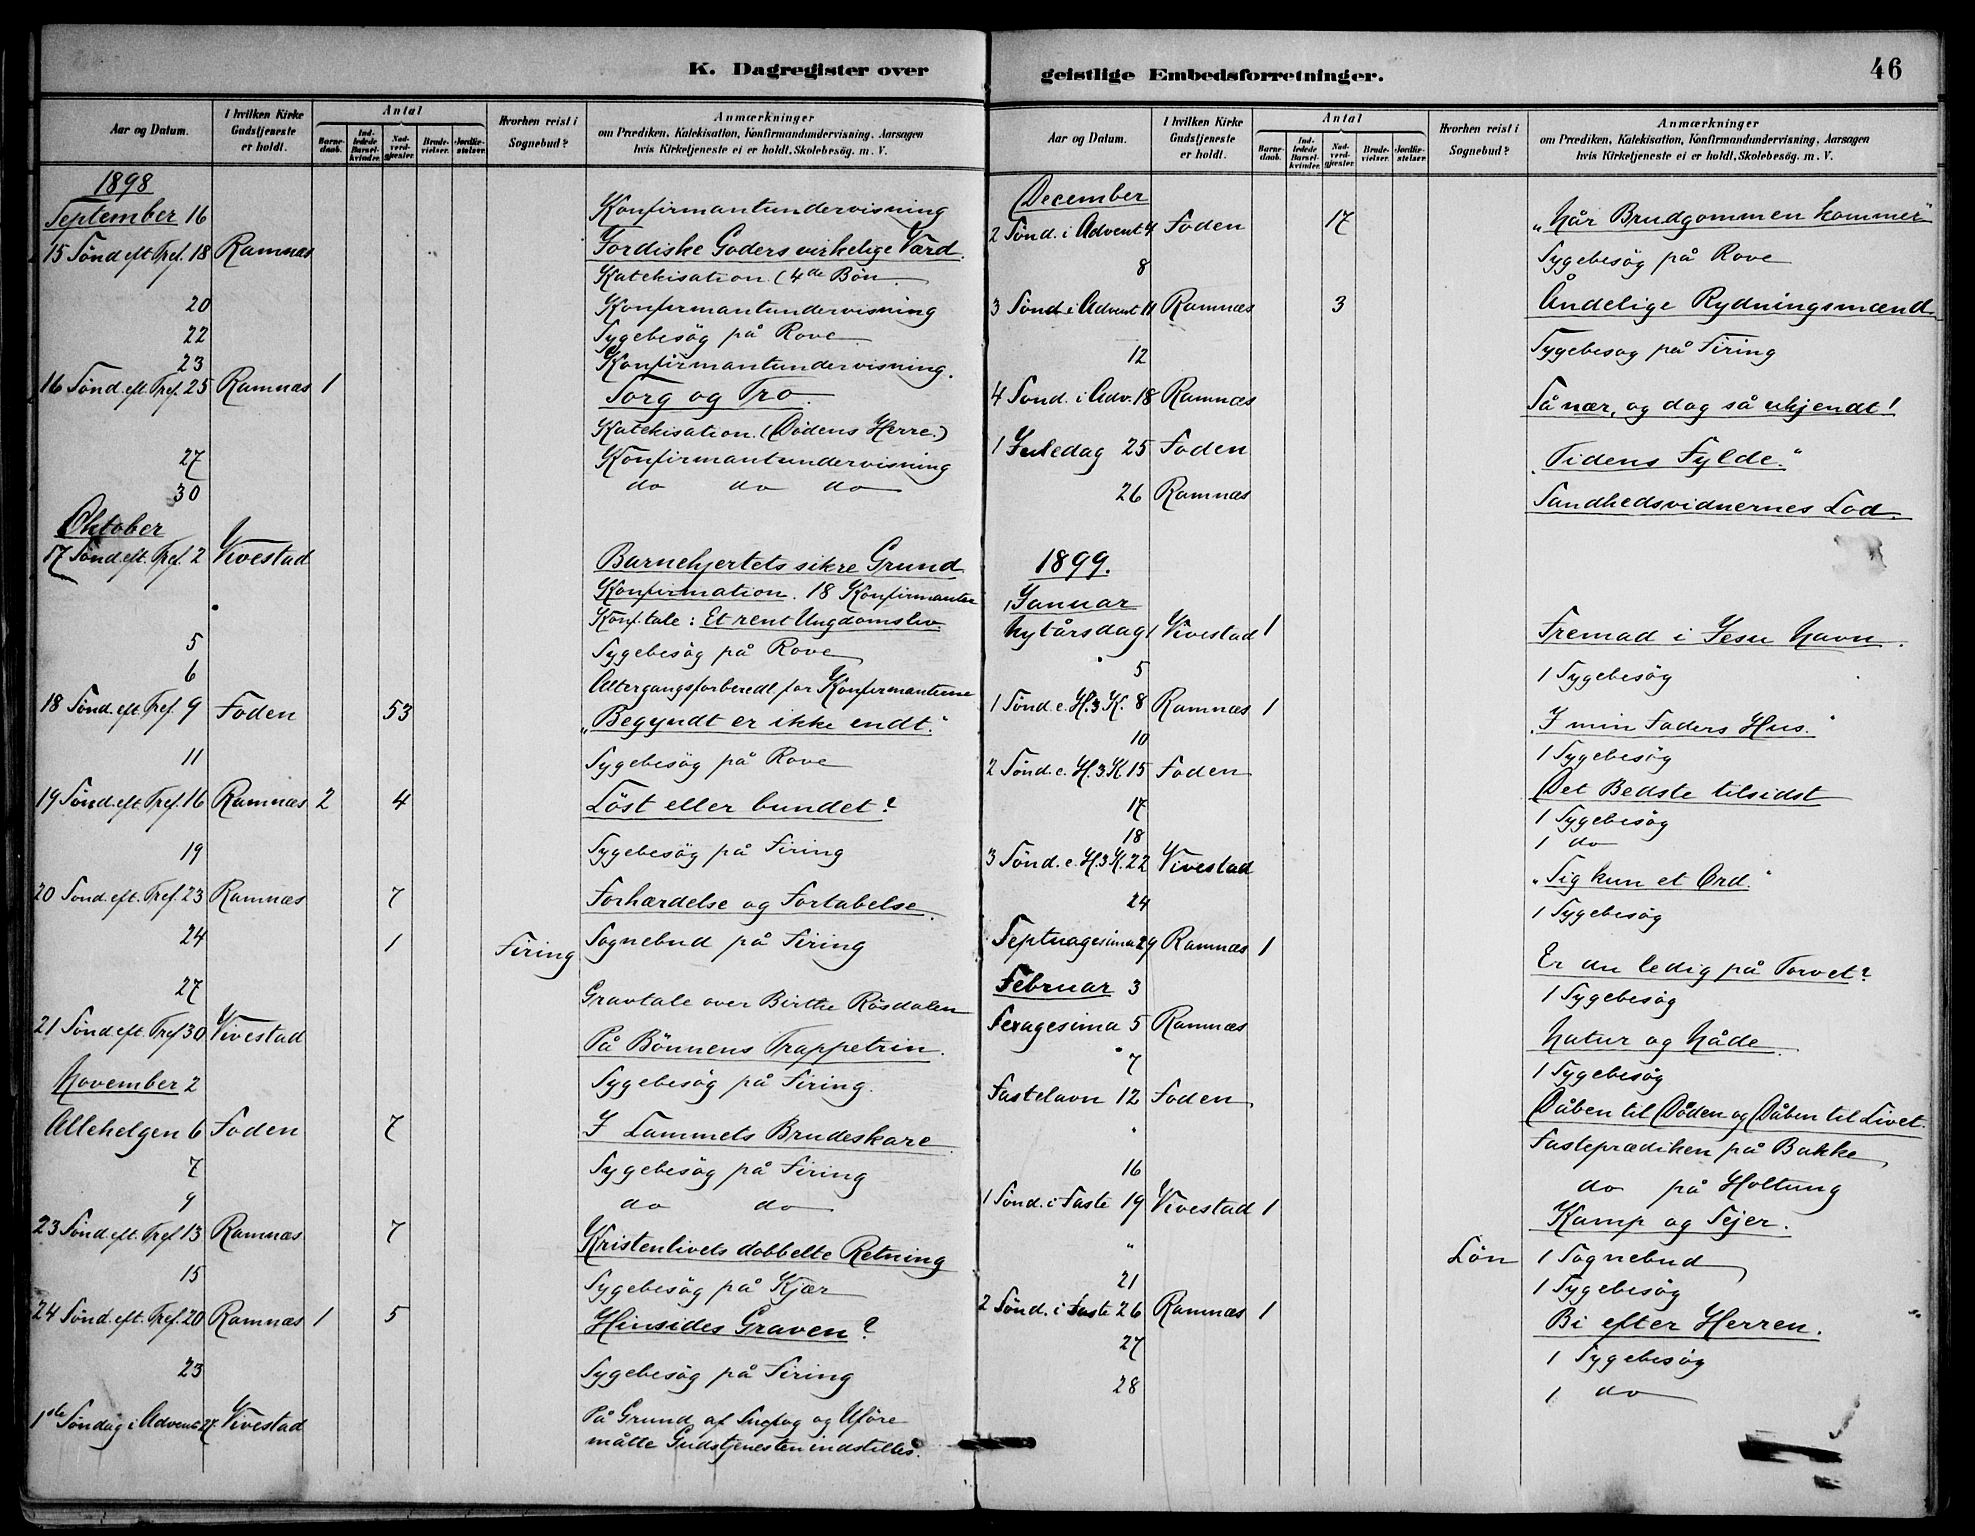 K. Dagregister over
Aar og Datum. I hvilken Kirke Gudstjeneste er holdt. Antal Barnedaab. Indledede Barselkvinder. Nadverdgjester. Brudevielser. Jordfæstelser. Hvorhen reist i Sognebud? Anmærkninger om Prædiken, Katekisation, Konfirmandundervisning, Aarsagen hvis Kirketjeneste ei er holdt, Skolebesøg. m. V.
1898
September 16 Konfirmantundervisning
15 Sønd eft Tref. 18 Ramnæs Jordiske Goders virkelige Værd.
Katekisation (4de Bøn
20 Konfirmantundervisning
22 Sygebesøg på Rove
23 Konfirmantundervisning.
16 Sønd. eft. Tref. 25 Ramnæs 1 Sorg og Tro.
Katekisation. (Dødens Herre.)
27 Konfirmantundervisning
30 do do do
Oktober
17 Sønd. eft. Tref. 2 Vivestad Barnehjertets sikre Grund
Konfirmation. 18 Konfirmanter
Konf. tale: Et rent Ungdomsliv.
5 Sygebesøg på Rove
6 Altergangsforberedt. for Konfirmanterne
18 Sønd. eft. Tref. 9 Foden 53 "Begyndt er ikke endt."
11 Sygebesøg på Rove
19 Sønd. eft. Tref. 16 Ramnæs 2 4 Løst eller bundet?
19 Sygebesøg på Firing
20 Sønd. eft. Tref. 23 Ramnæs 7 Forhærdelse og Fortabelse.
24 1 Firing Sognebud på Firing
27 Gravtale over Birthe Røsdalen
21 Sønd. eft. Tref 30 Vivestad På Bønnens Trappetrin.
November 2 Sygebesøg på Firing.
Allehelgen 6 Foden 7 I Lammets Brudeskare.
7 Sygebesøg på Firing
9 do do
23 Sønd. eft. Tref 13 Ramnæs 7 Kristenlivets dobbelte Retning
15 Sygebesøg på Kjær
24 Sønd. eft. Tref. 20 Ramnæs 1 5 Hinsides Graven?
23 Sygebesøg på Firing
1ste Søndag i Advent 27. Vivestad På Grund af Snefog og Uføre
måtte Gudstjenesten indstilles.
geistlige Embedsforretninger. 46
Aar og Datum. I hvilken Kirke Gudstjeneste er holdt. Antal Barnedaab. Indledede Barselkvinder. Nadverdgjester. Brudevielser. Jordfæstelser. Hvorhen reist i Sognebud? Anmærkninger om Prædiken, Katekisation, Konfirmandundervisning, Aarsagen hvis Kirketjeneste ei er holdt, Skolebesøg. m. V.
December
2 Sønd. i Advent 4 Foden 17 "Når Brudgommen kommer"
8 Sygebesøg på Rove
3 Sønd. i Advent 11 Ramnæs 3 Åndelige Rydningsmænd.
12 Sygebesøg på Firing
4 Sønd. i Adv. 18 Ramnæs Så nær, og dog så ukjendt!
1 Juledag 25 Foden "Tidens Fylde."
26 Ramnæs Sandhedsvidnernes Lod.
1899.
Januar
Nytårsdag 1 Vivestad 1 Fremad i Jesu Navn.
5 1 Sygebesøg
1 Sønd. e. H. 3 K. 8 Ramnæs 1 "I min Faders Hus."
10 1 Sygebesøg
2 Sønd. e. H. 3 K. 15 Foden Det Bedste tilsidst
17 1 Sygebesøg
18 1 do
3 Sønd. e. H. 3 K. 22 Vivestad "Sig kun et Ord."
24 1 Sygebesøg
Septuagesima 29 Ramnæs 1 Er du ledig på Torvet?
Februar 3 1 Sygebesøg
Sexagesima 5 Ramnæs Natur og Nåde.
7 1 Sygebesøg
Fastelavn 12 Foden Dåben til Døden og Dåben til Livet.
" Fasteprædiken på Bakke
16 do på Holtung
1 Sønd. i Faste 19 Vivestad 1 Kamp og Sejer.
" Løn 1 Sognebud
21 1 Sygebesøg
2 Sønd. i Faste 26 Ramnæs 1 Bi efter Herren.
27 1 Sygebesøg
28 1 do